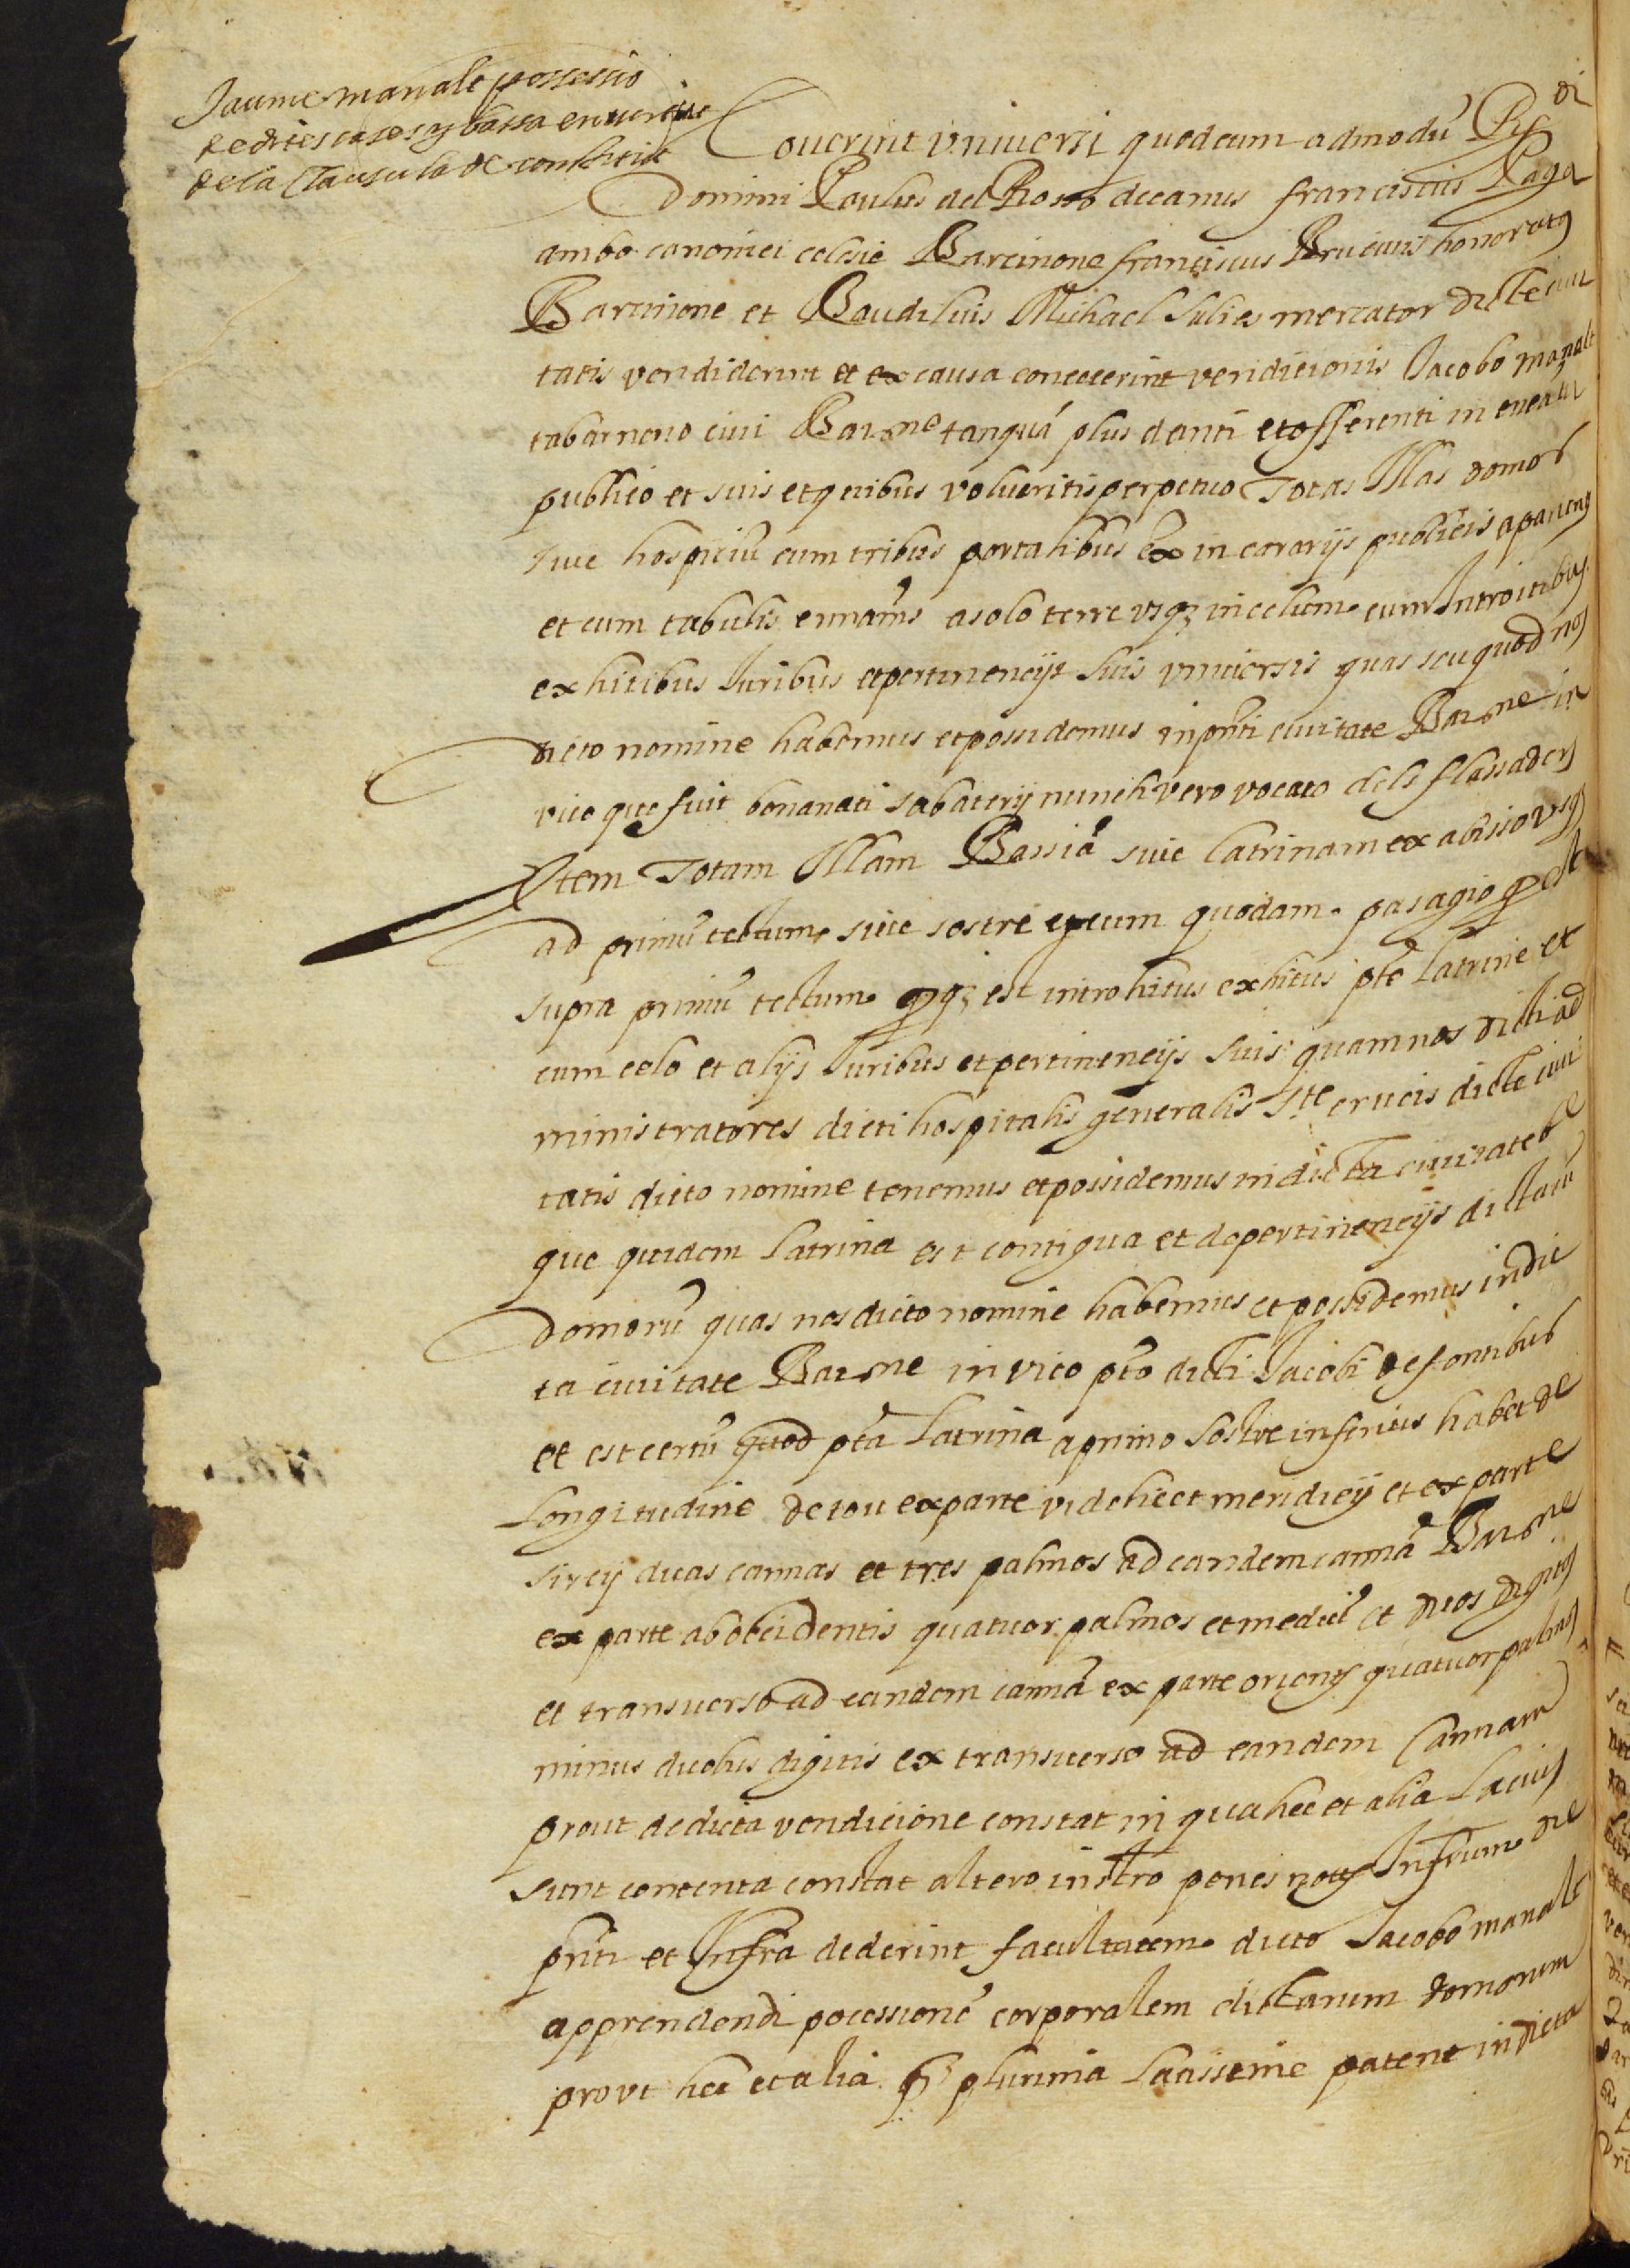 Jaume manalt possessio
de dites cases y bassa en virtut
de la clausula de constitut
Noverint universi quod cum admodũ Rdi
Domini Paulus del Rosso decanus franciscus Laga
ambo canonici eclesie Barcinone franciscus Bru civis honoratus
Barcinone et Baudilius Michael Julia mercator dicte civi
tatis vendiderint et ex causa concecerint vendicionis Jacobo manalt
tabarnerio civi Barne tanquã plus danti et offerenti in encatu
publico et suis et quibus volueritis perpetuo Totas Illas domos
sive hospiciũ cum tribus portalibus in cararijs publicis aparentes
et cum tabulis a solo terre usq; in celum cum Introitibus
exhitibus Juribus et pertinencijs suis universis quas seu quod nos
dicto nomine habemus et possidemus in pñti civitate Barne in
vico que fuit bonanati sabaterij nunch vero vocato dels flassaders
Item Totam Illam Bassiã sive latrinam ex abissio usq
ad primũ tectum sive sostre et cum quodam pasagio est
supra primũ tectum est introhitus exhitus pte latrine et
cum celo et alijs Juribus et pertinencijs suis quam nos dicti ad
ministratores dicti hospitalis generalis Ste crucis dicte civi
tatis dicto nomine tenemus et possidemus in dicta civitate be
que quidem latrina est contigua et de pertinencijs dictarũ
domorũ quas nos dicto nomine habemus et possidemus in dic
ta civitate Barne in vico pto dicti Jacobi de fontibus
et est certũ quod pta latrina a primo sostre inferius habet de
longitudine de sou ex parte videlicet meridiey et ex parte
sircij duas cannas et tres palmos ad eandem cannã Barne
ex parte ab occidentis quatuor palmos et mediũ et duos digitos
et transverso ad eandem cannã ex parte orientis quatuor palmos
minus duobus digitis ex transverso ad eandem Cannam
prout de dicta vendicione constat in qua hec et alia Lacius
sunt contenta constat altero instro penes notm Infrum die
pñti et Infra dederint facultatem dicto Jacobo manalt
apprendendi pocessionẽ corporalem dictarum domorum
prout hec et alia plurima lacissime patent in dicta